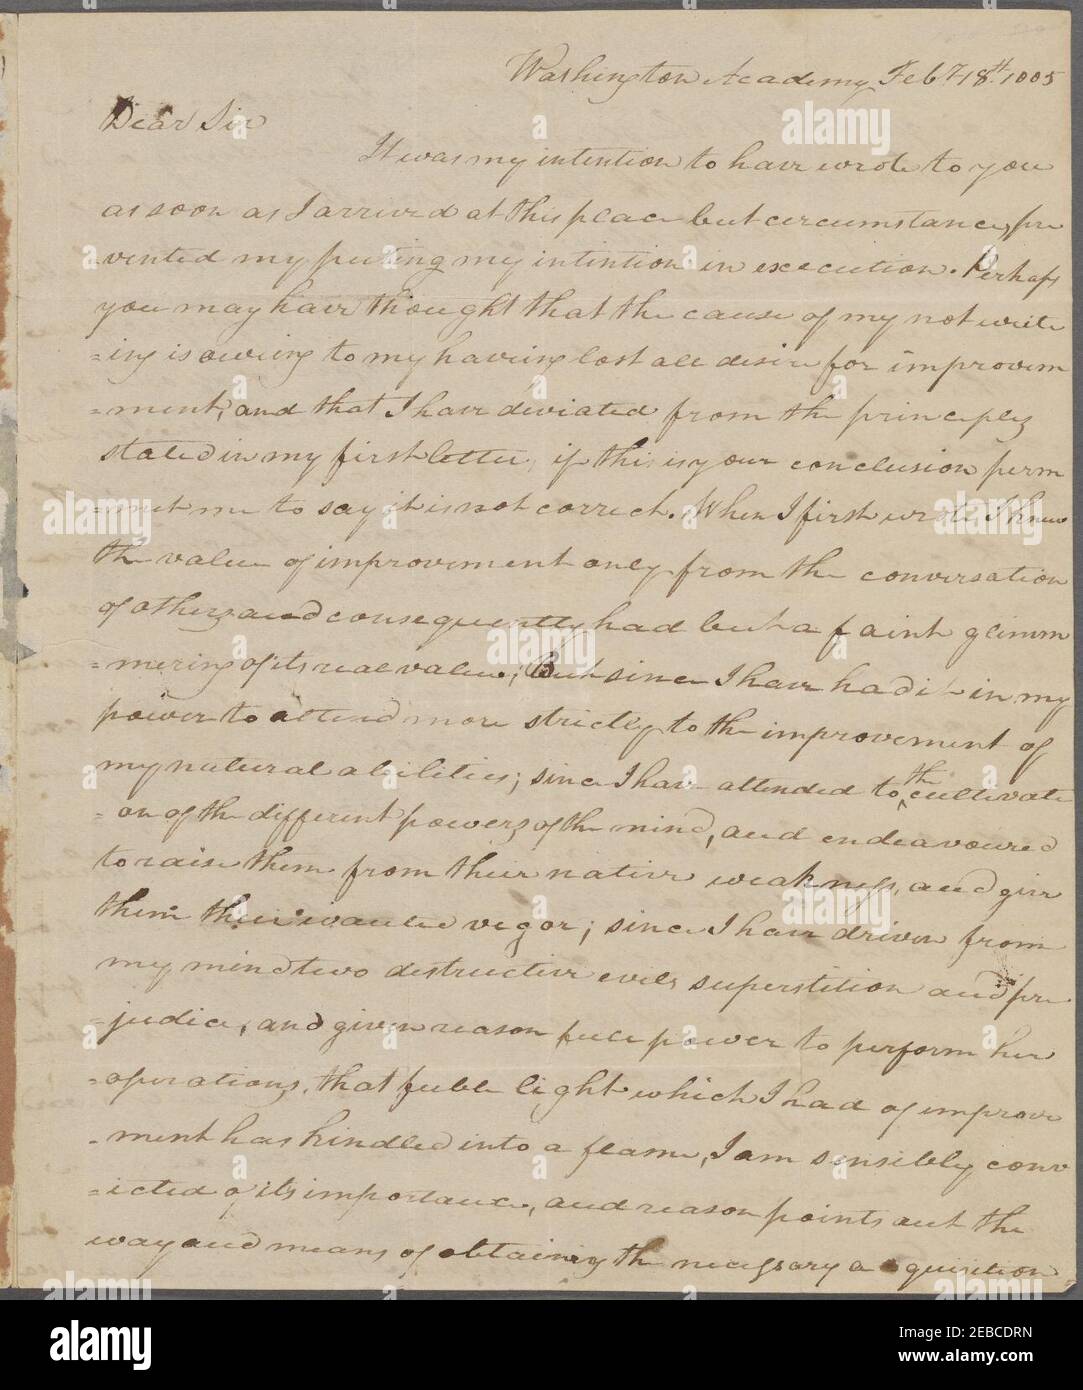 Washington Academy Feby 18th 1805
Dear Sir
It was my intention to have wrote to you
as soon as I arrived at this place but circumstances pre
vented my puting my intintion in execution. Perhaps
you may have thought that the cause of my not write
=ing is owing to my having lost all desire for improvem
=ment, and that I have deviated from the principles
stated in my first letter, if this is your conclusion perm
=mit me to say it is not correct. When I first wrote I knew
the value of improvement only from the conversation
of others and consequently had but a faint glimm
=mering of its real value; But since I have had it in my
power to attend more strictly to the improvement of
my natural abilities; since I have attended to the cultivate
=on of the different powers of the mind, and endeavoured
to raise them from their native weakness, and give
them their wanted vegor; since I have driven from
my mind two destructive evils superstition and pre
=judice, and given reason full power to perform her
=operations, that feeble light which I had of improve
=ment has kindled into a flame, I am sensibly conv
=icted of its importance, and reason points out the
way and means of obtaining the necessary acquisition
alamy
Image ID: 2EBCDRN
www.alamy.com